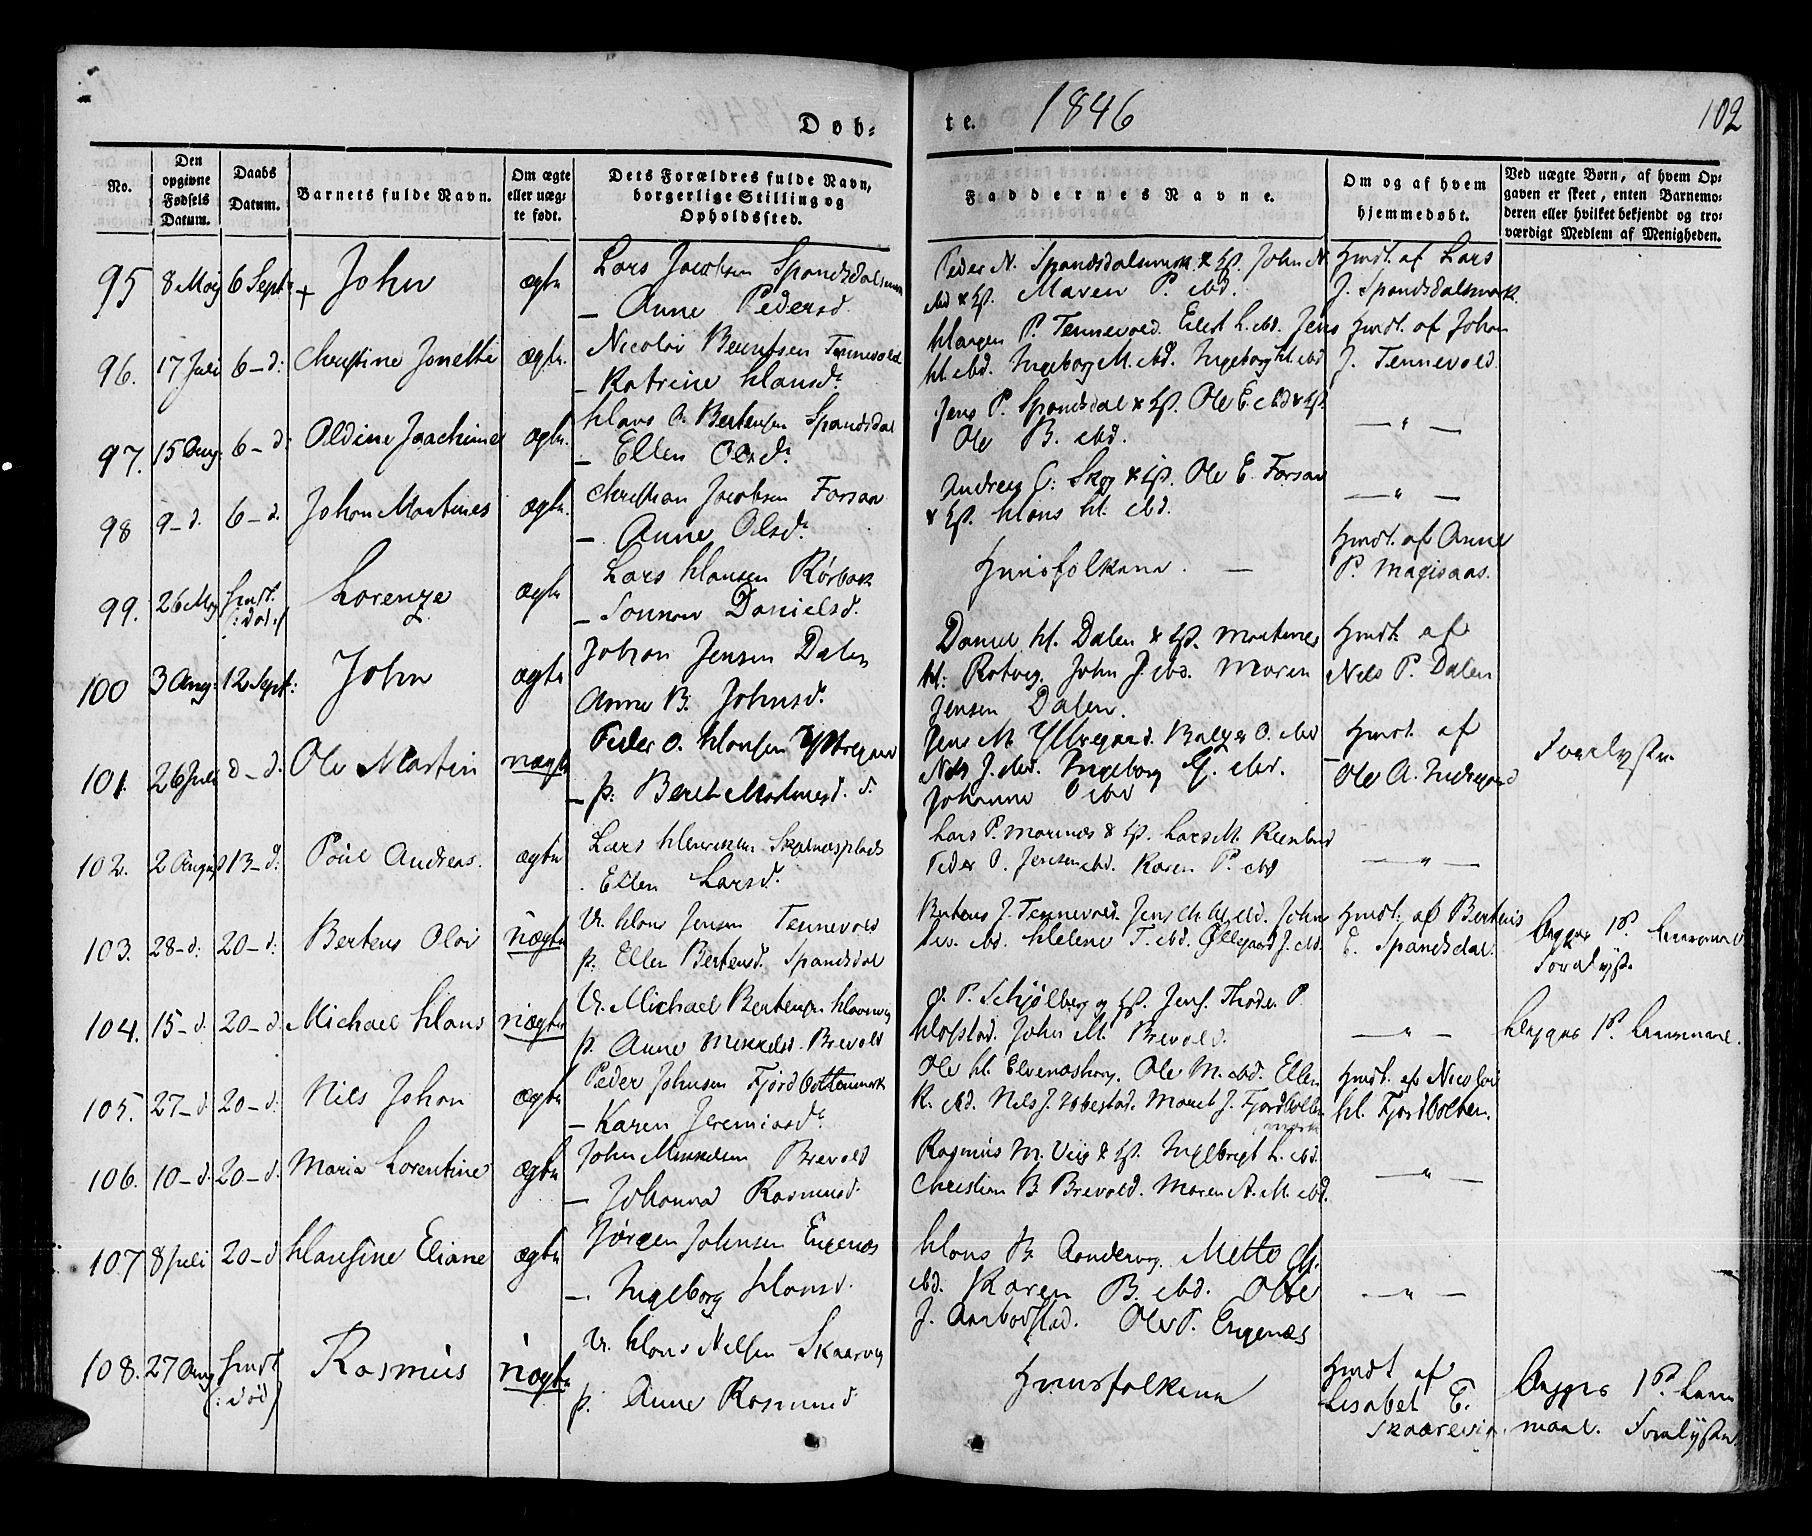 1846
102
Døb-
te.
No.
Den opgivne Fødsels Datum.
Daabs Datum.
Barnets fulde Navn.
Om ægte eller uægte født.
Dets Forældres fulde Navn, borgerlige Stilling og Opholdssted.
Faddernes Navne.
Om og af hvem hjemmedøbt.
Ved uægte Børn, af hvem Opgaven er skeet, enten Barnemoderen eller hvilket bekjendt og troværdigt Medlem af Menigheden.
95 8 May 6 Sept: + John ægte Lars Jacobsen Spandsdalsmark
– Anne Pedersd.
Peder N. Spandsdalsmark & H. John N.
ibd & H. Maren P. ibd.
Hmdt. af Lars
J. Spandsdalsmark
96. 17 Juli 6 – d: Christine Jonette ægte. Nicolai Berntsen Tennevold
– Katrine Hansd.
Hangen P. Tennevold. Eilert L. ibd. Jens
H. ibd. Ingeborg M. ibd. Ingeborg H. ibd
Hmdt. af Johan
J. Tennevold.
97. 15 Aug: 6 – d: Oldine Joachime ægte. Hans A. Bertensen Spandsdal
– Ellen Olsd.
Jens P. Spandsdal & H. Ole E. ibd & H.
Ole B. ibd.
— " —
98 9 – d. 6 – d. Johan Martines ægte. Christian Jacobsen Forsaa
– Anne Olsd.
Andreas C: Skog & H. Ole E. Forsaa
& H. Hans H. ibd.
— " —
99. 26 May hmdt. (: død :) Lorenze ægte Lars Hansen Rørbak
– Danielsd.
Huusfolkene. —
Hmdt. af Anne
P. Magisaas.
100 3 Aug: 12 Sept: John ægte Johan Jensen Dalen
Anne B. Johnsd.
Daniel H. Dalen & H. Martines
H: Rotvig. John J. ibd. Maren
Jensen Dalen.
Hmdt. af
Nils P. Dalen
101. 26 Juli d – d. Ole Martin uægte Peder O. Hansen Yttregaard
– p: Berit Martinesd.
Jens M. Yttregaard. O. ibd
Nils J. ibd. Ingeborg G. ibd.
Johanna O ibd
Hmdt. af
Ole A. Indregaard
102. 2 August 13 – d: Poul Andreas. ægte Lars Henriksen
Ellen Larsd.
Lars P. Marinæs & H. Lars M.
Peder O. Jensen ibd. Karen P. ibd
— " —
103. 28 – d: 20 – d: Bertens Olai uægte U. Hans Jensen Tennevold
p. Ellen Bertensd. Spandsdal
Bertens J. Tennevold. Jens M. ibd. John
ibd. Helene T. ibd. Øllegaard J. ibd.
Hmdt. af Bertens
E. Spandsdal.
Begges 1ste Leiermaal
104. 15 – d. 20 – d. Michael Hans uægte U. Michael Bertensen
p. Anne Mikkelsd. Brevold
P. Schjølberg og H. Jens. Thode. P.
Hofstad. John M. Brevold.
— " —
Begges 1ste Leiermaal.
105. 27 – d. 20 – d: Nils Johan ægte Peder Johnsen Fjordbottenmark
– Karen Jeremiasd.
Ole H. Elvenæshaug. Ole M. ibd. Ellen
K. ibd. Nils J. Maret J. Fjordbotten
mark
Hmdt. af Nicolai
H. Fjordbotten.
106. 10 – d. 20 – d. Maria Lorentine ægte John Mikkelsen Brevold
– Johanna Rasmusd.
Rasmus M. Viig & H. Ingebrigt L. ibd.
Christian B Brevold. Maren A. M. ibd.
— " —
107 8 Juli 20 – d Hansine Eliane ægte Jørgen Johnsen Engenæs
–. Ingeborg Hansd.
Hans B. Mette
ibd. Karen B. ibd. Olve
J. Aarbodstad. Ole P. Engenæs
— " —
108. 27 Aug hmdt (: død) Rasmus uægte U. Hans Nilsen Skaarvig
p. Anne Rasmusd
Huusfolkene
Hmdt af
Lisabet E.
Skaarvig.
Begges 1ste Leier
maal.